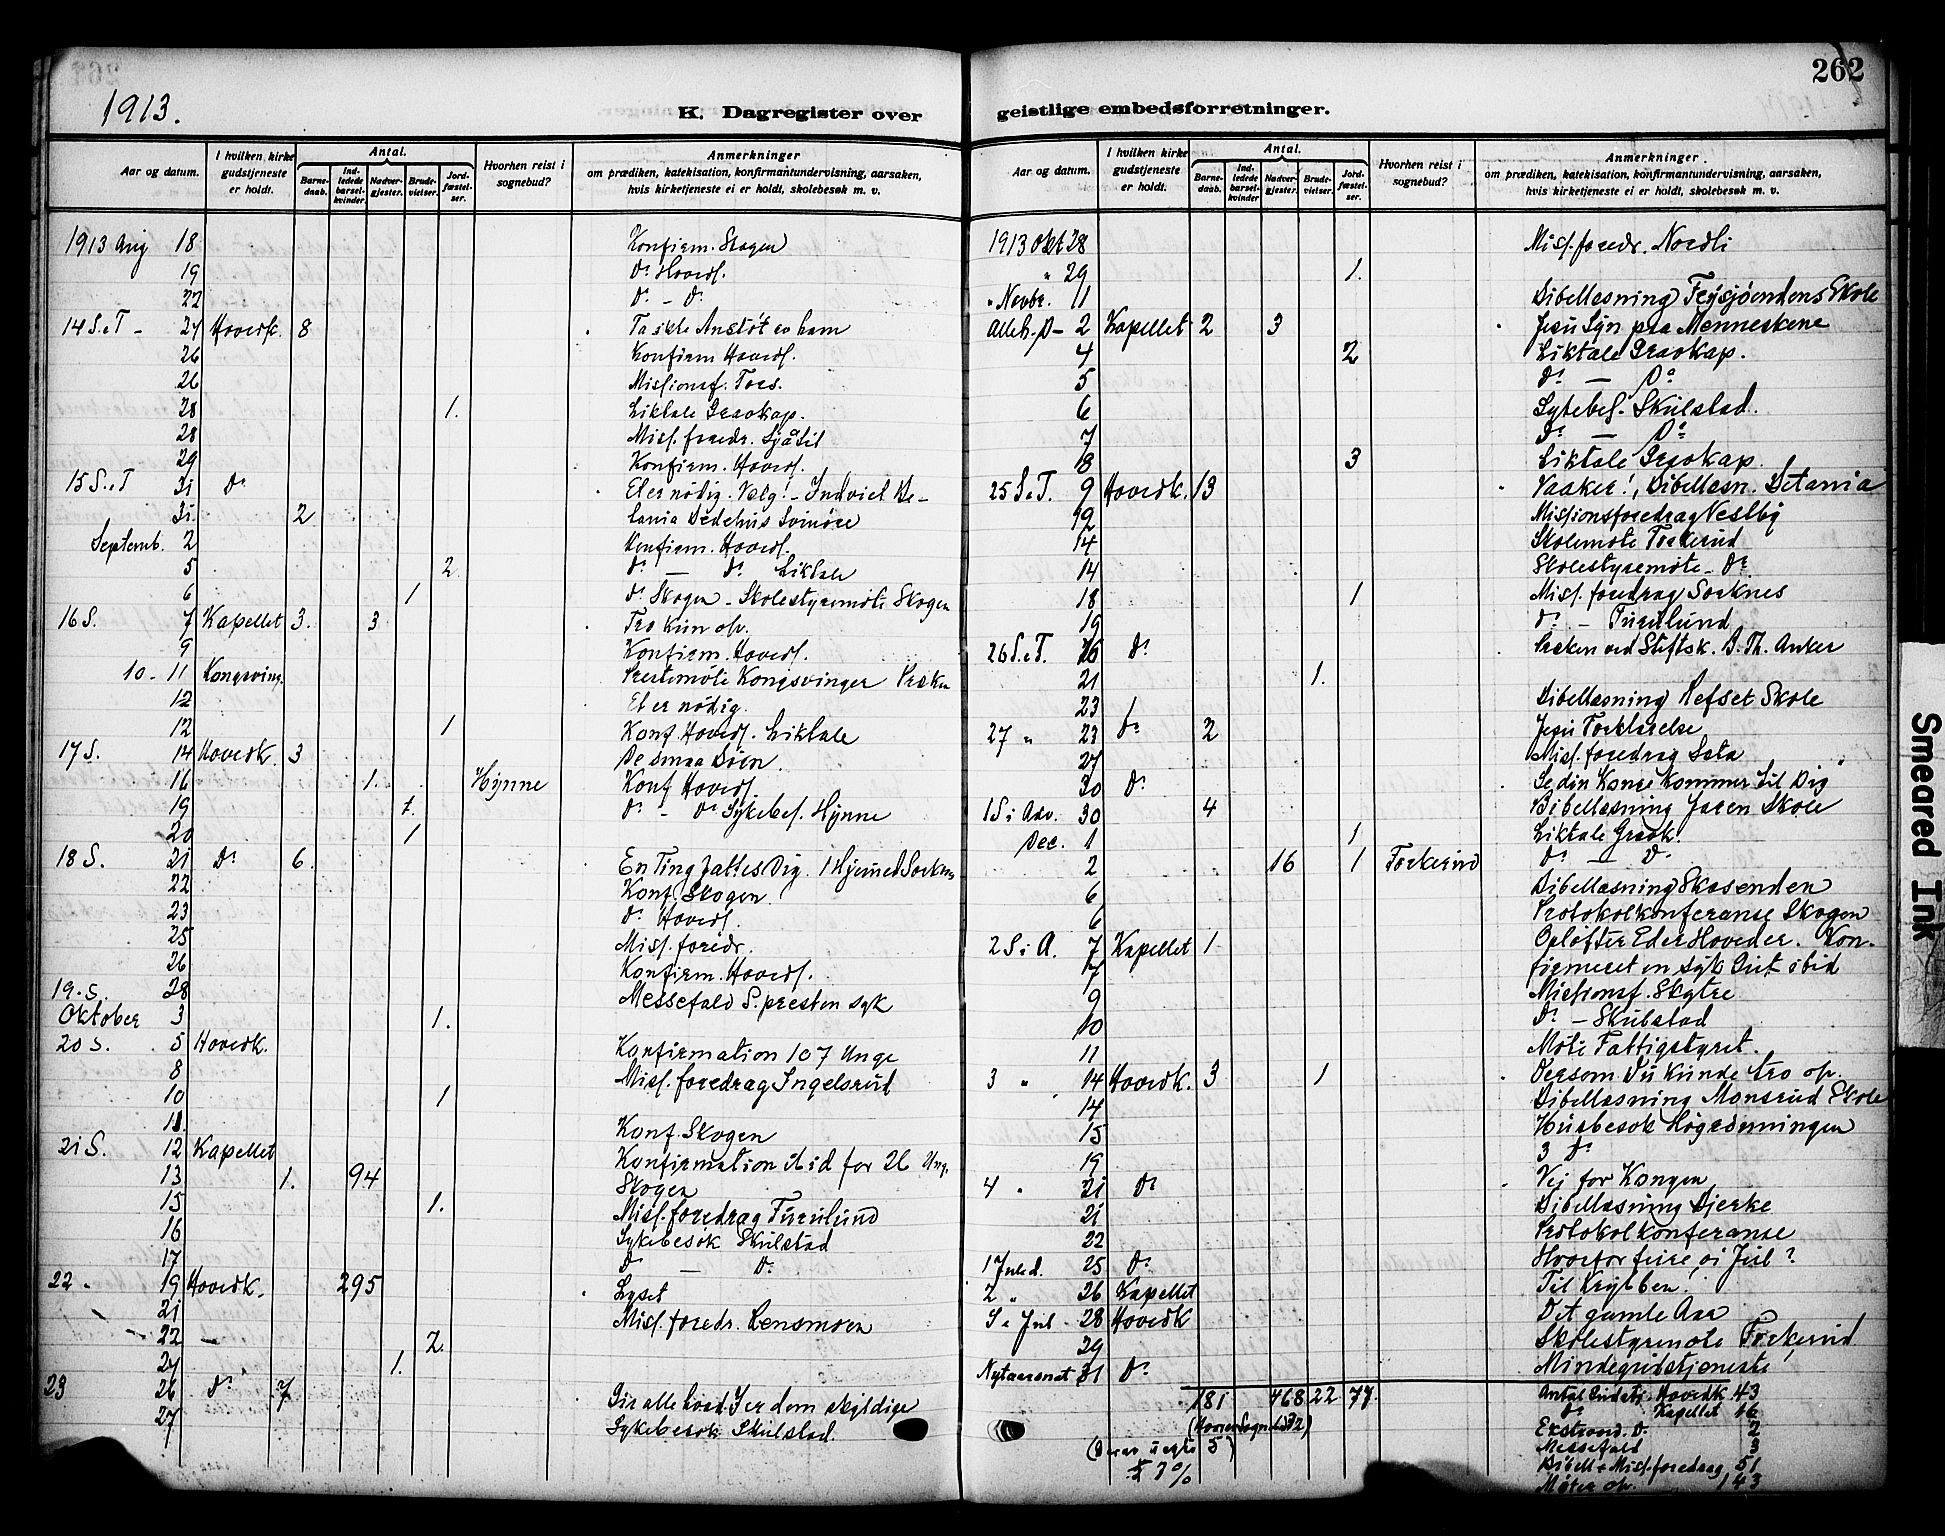 262
1913.
K. Dagregister over geistlige embedsforretninger.
Aar og datum.
I hvilken kirke gudstjeneste er holdt.
Antal.
Barne-daab.
Ind-ledede barsel-kvinder.
Nadver-gjester.
Brude-vielser.
Jord-fæstel-ser.
Hvorhen reist i sognebud?
Anmerkninger
om prædiken, katekisation, konfirmantundervisning, aarsaken, hvis kirketjeneste ei er holdt, skolebesøk m. v.
1913 Aug 18 Konfirm. Skogen
19 Do Hovds.
22 Do - Do
14 S.e.T - 24 Hovedk. 8 Ta ikke Anstøt av ham
26 Konfirm Hovds.
26 Missionsf. Tors.
28 1. Liktale Gravkap.
28 Miss. foredr. Sjåli
29 Konfirm. Hovds.
15 S.e.T 31 Do Et er nødig. Vælg! - Indviet Be-
31. 2 tania Bedehus Svinøre
Septemb. 2 Konfirm. Hovds.
5 2 Do - Do Liktale
6 1 Do Skogen - Skolestyremøte Skogen
16 S. 7 Kapellet 3. 3 Tro kun op.
9 Konfirm. Hovds.
10 - 11 Kongsving. Prestemøte Kongsvinger Præken
12 Et er nødig.
12 1 Konf. Hovds. Liktale
17 S. 14 Hovedk. 3 De smaa Børn.
16 1. Hynne Konf Hovds.
19 1. Do - Do Sykebes. Hynne
20 1
18 S. 21 Do 6. En Ting fattes Dig.
22 Konf. Skogen
23 Do Hovds.
25 Miss. foredr.
26 Konfirm. Hovds.
19. S. 28 Messefald S. presten syk
Oktober 3 1.
20 S. 5 Hovedk. Konfirmation 107 Unge
8 Miss. foredrag Ingelsrud
10 1
11. Konf. Skogen
21 S. 12 Kapellet Konfirmation ibid for 26 Ung.
13 1. 94 Skogen
15 1. Miss. foredrag Furulund
16 Sykebesøk Skulstad
17 Do - Do
22 - 19 Hovedk. 295 Lyset
21 Miss. foredr. Lensmoen
22 - 2.
24 1.
23 26 Do 7 Gir alle hvad I er dem skyldige
27 Sykebesøk Skulstad.
Aar og datum.
I hvilken kirke gudstjeneste er holdt.
Antal.
Barne-daab.
Ind-ledede barsel-kvinder
Nadver-gjester.
Brude-vielser.
Jord-fæstel-ser.
Hvorhen reist i sognebud?
Anmerkninger.
om prædiken, katekisation, konfirmantundervisning, aarsaken, hvis kirketjeneste ei er holdt, skolebesøk m. v.
1913 Okt 28 Miss. foredr. Nordli
" 29 1.
" Novbr. 11 Bibellæsning Frysjøendens Skole
Alleh. D - 2 Kapellet 2 3 Jesu Syn paa Menneskene
4 2 Liktale Gravkap.
5 Do - Do
6 Sykebes. Skulstad.
7 Do - Do
18 3 Liktale Gravkap.
25 S.e.T. 9 Hovedk. 13 Vaaker!, Bibellæsn. Betania
12 Missionsforedrag Vestby
14 Skolemøte Torkerud
14 Skolestyremøte - Do
18 1 Miss. foredrag Sorknes
19 Do - Furulund
26 S.e.T. 16 Do Præken ved Stiftsk. B. Th. Anker
21 1.
23 Bibellæsning Refset Skole
27 " 23 Do 2 Jesu Forklarelse
24 Miss. foredrag Sata
30 Do Se din Konge kommer til Dig
1 S i Adv. 30 4 Bibellæsning Jaren Skole
Dec. 1 1 Liktale Gravk.
2 16 1 Torkerud Do - Do
6 Bibellæsning Skasenden
6 Protokolkonferanse Skogen
2 S i A. 7 Kapellet 1 Opløfter Eder Hoveder. Kon-
7 firmeret en syk Gut ibid
9 Missionsf. Skytre
10 Do - Skulstad
11 Møte Fattigstyret.
3 " 14 Hovedk. 3 1 Dersom Du kunde tro op.
14 Bibellæsning Monsrud Skole
15 Husbesøk Høgrenningen
19 3 Do
4 " 21 Do Vej for Kongen
21 Bibellæsning Bjerke
22 Protokolkonferanse
1 Juled. 25 Do Hvorfor feire vi Jul?
2 " 26 Kapellet Til Krybben!
S e Jul 28 Hovedk Det gamle Aar
29 Skolestyremøte Torkerud
Nytaarsnat 31 Do Mindegudstjeneste
181 468 22 77.
(Derav uegte 5)
Antal Gudstj. Hovedk 43
Do Kapellet 16
Ekstraord. Do 2
Messefald 3
Bibell + Miss. foredrag 51
Møter op. 143
Smeared Ink